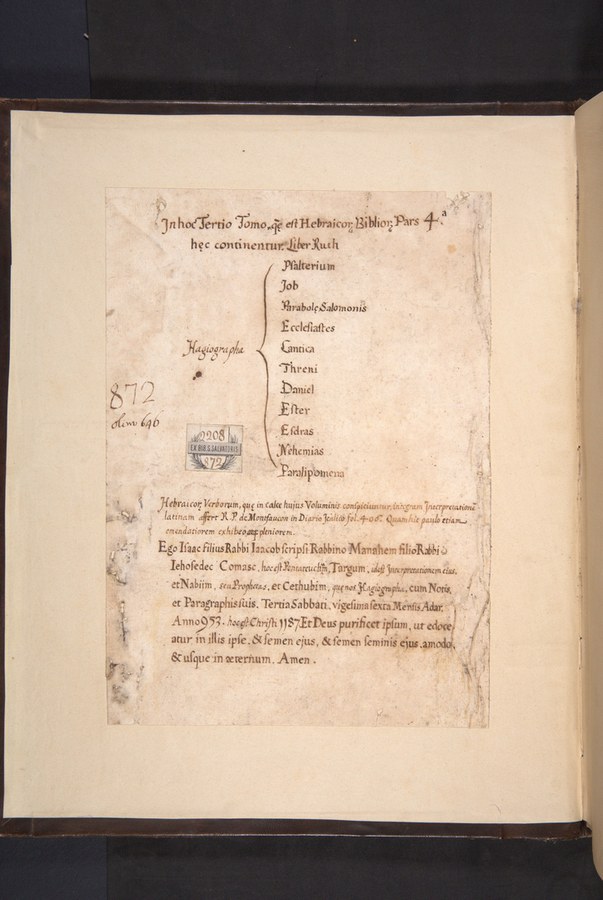 In hoc Tertio Tomo, qe est Hebraicor. Biblior. Pars 4.a
hęc continentur. Liber Ruth
Psalterium
Job
Parabolę Salomonis
Ecclesiastes
Hagiographa
Cantica
Threni
Daniel
Ester
Esdras
Nehemias
Paralipomena
872
olim 646
2208
EX BIB. S. SALVATORIS
872
Hebraicor. Verborum, quę in calce hujus Voluminis conspiciuntur, integram Interpretationē
latinam affert R. P. de Montfaucon in Diario Italico fol. 400. Quam hic paulo etiam
emendatiorem exhibeo et pleniorem.
Ego Isaac filius Rabbi Jaacob scripsi Rabbino Manahem filio Rabbi
Iehosedec Comasc, hoc est Pentateuchū, Targum, idest Interpretationem ejus,
et Nabiim, seu Prophetas, et Cethubim, quę nos Hagiographa, cum Notis,
et Paragraphis suis. Tertia Sabbati, vigesima sexta Mensis Adar,
Anno 953. hoc est Christi 1187. Et Deus purificet ipsum, ut edoce
atur in illis ipse, & semen ejus, & semen seminis ejus, amodo,
& usque in æternum. Amen.